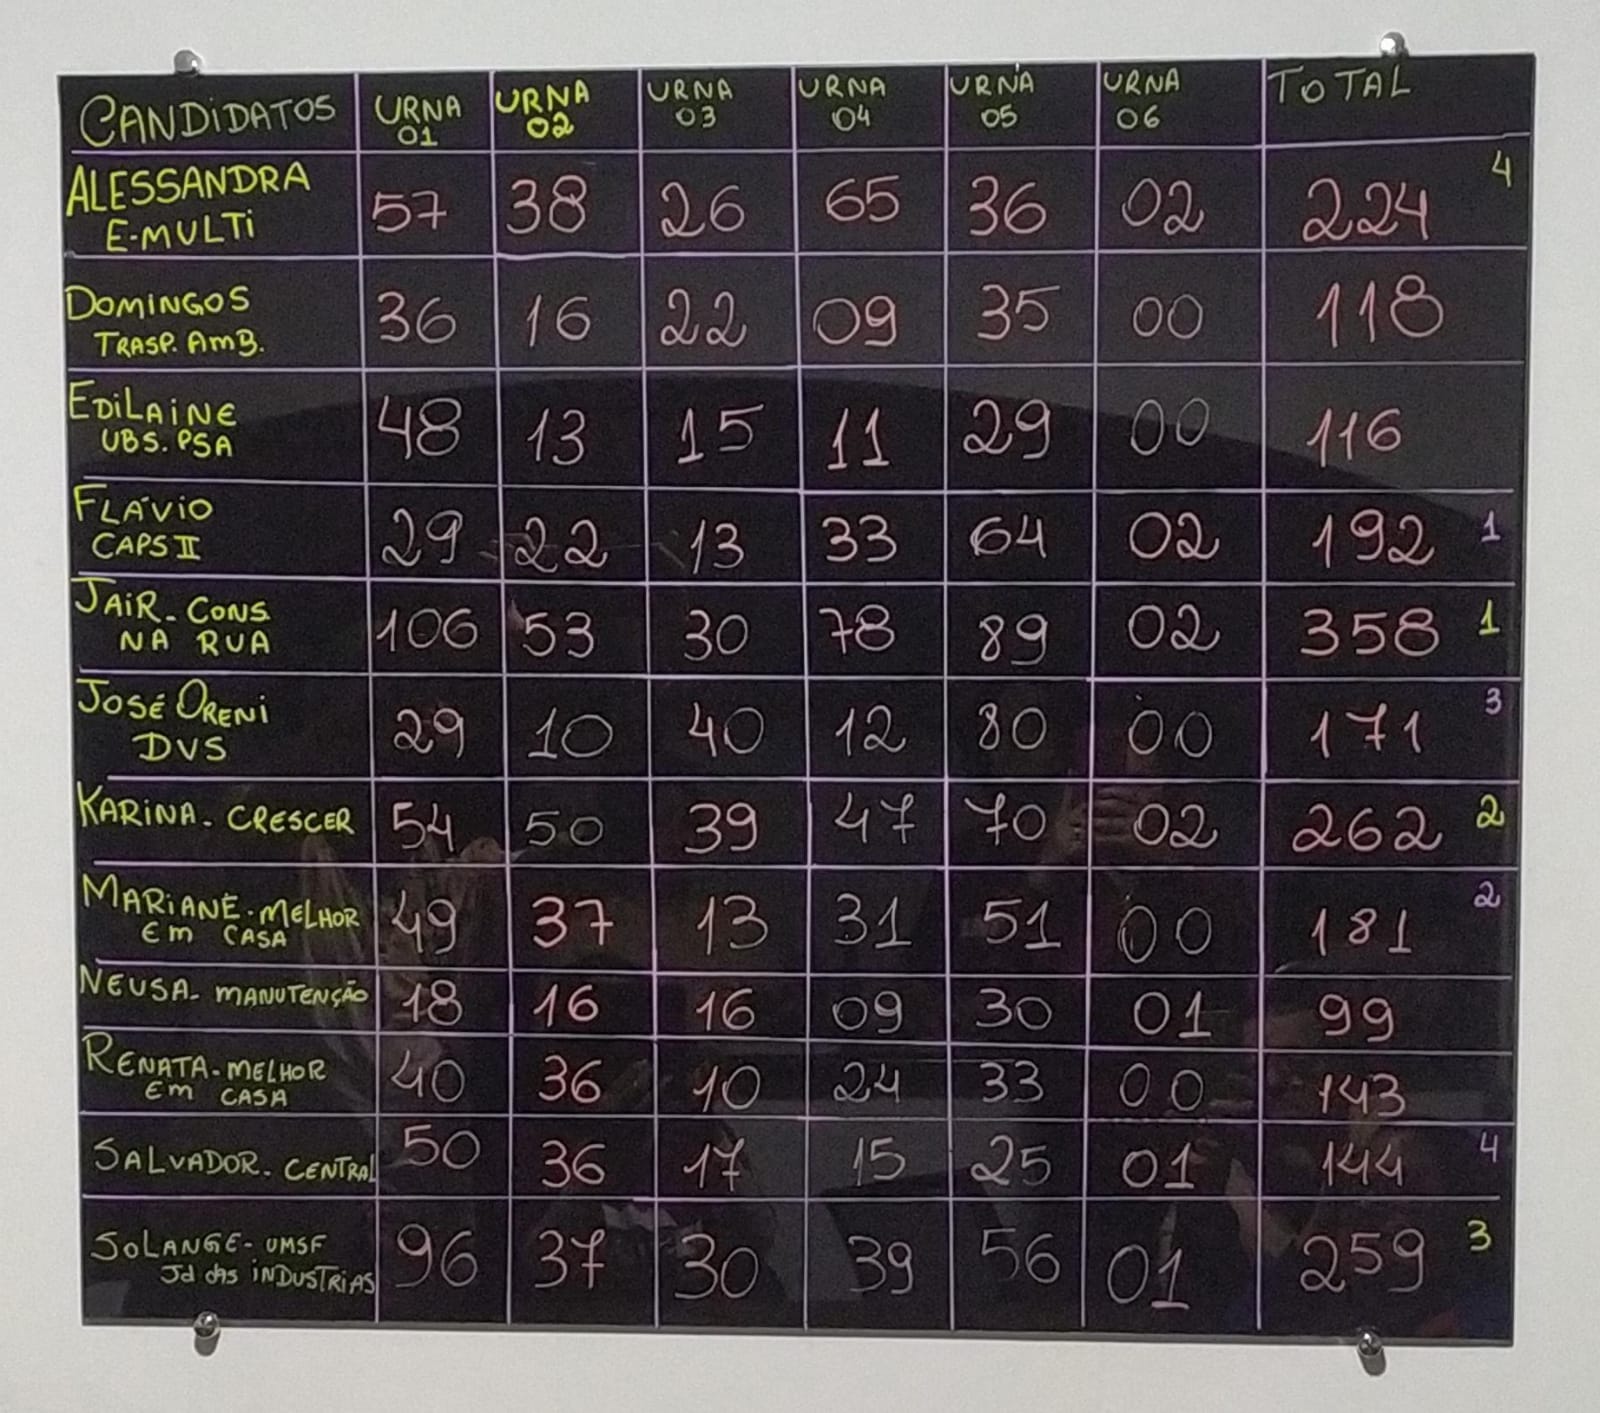 CANDIDATOS URNA 01 URNA 02 URNA 03 URNA 04 URNA 05 URNA 06 TOTAL
ALESSANDRA E-MULTI 57 38 26 65 36 02 224 4
DOMINGOS TRASP. AMB. 36 16 22 09 35 00 118
EDILAINE UBS. PSA 48 13 15 11 29 00 116
FLÁVIO CAPS II 29 22 13 33 64 02 192 1
JAIR - CONS NA RUA 106 53 30 78 89 02 358 1
JOSÉ ORENI DVS 29 10 40 12 80 00 171 3
KARINA - CRESCER 54 50 39 47 70 02 262 2
MARIANE - MELHOR EM CASA 49 37 13 31 51 00 181 2
NEUSA - MANUTENÇÃO 18 16 16 09 30 01 99
RENATA - MELHOR EM CASA 40 36 10 24 33 00 143
SALVADOR - CENTRAL 50 36 17 15 25 01 144 4
SOLANGE - UMSF Jd das INDUSTRIAS 96 37 30 39 56 01 259 3